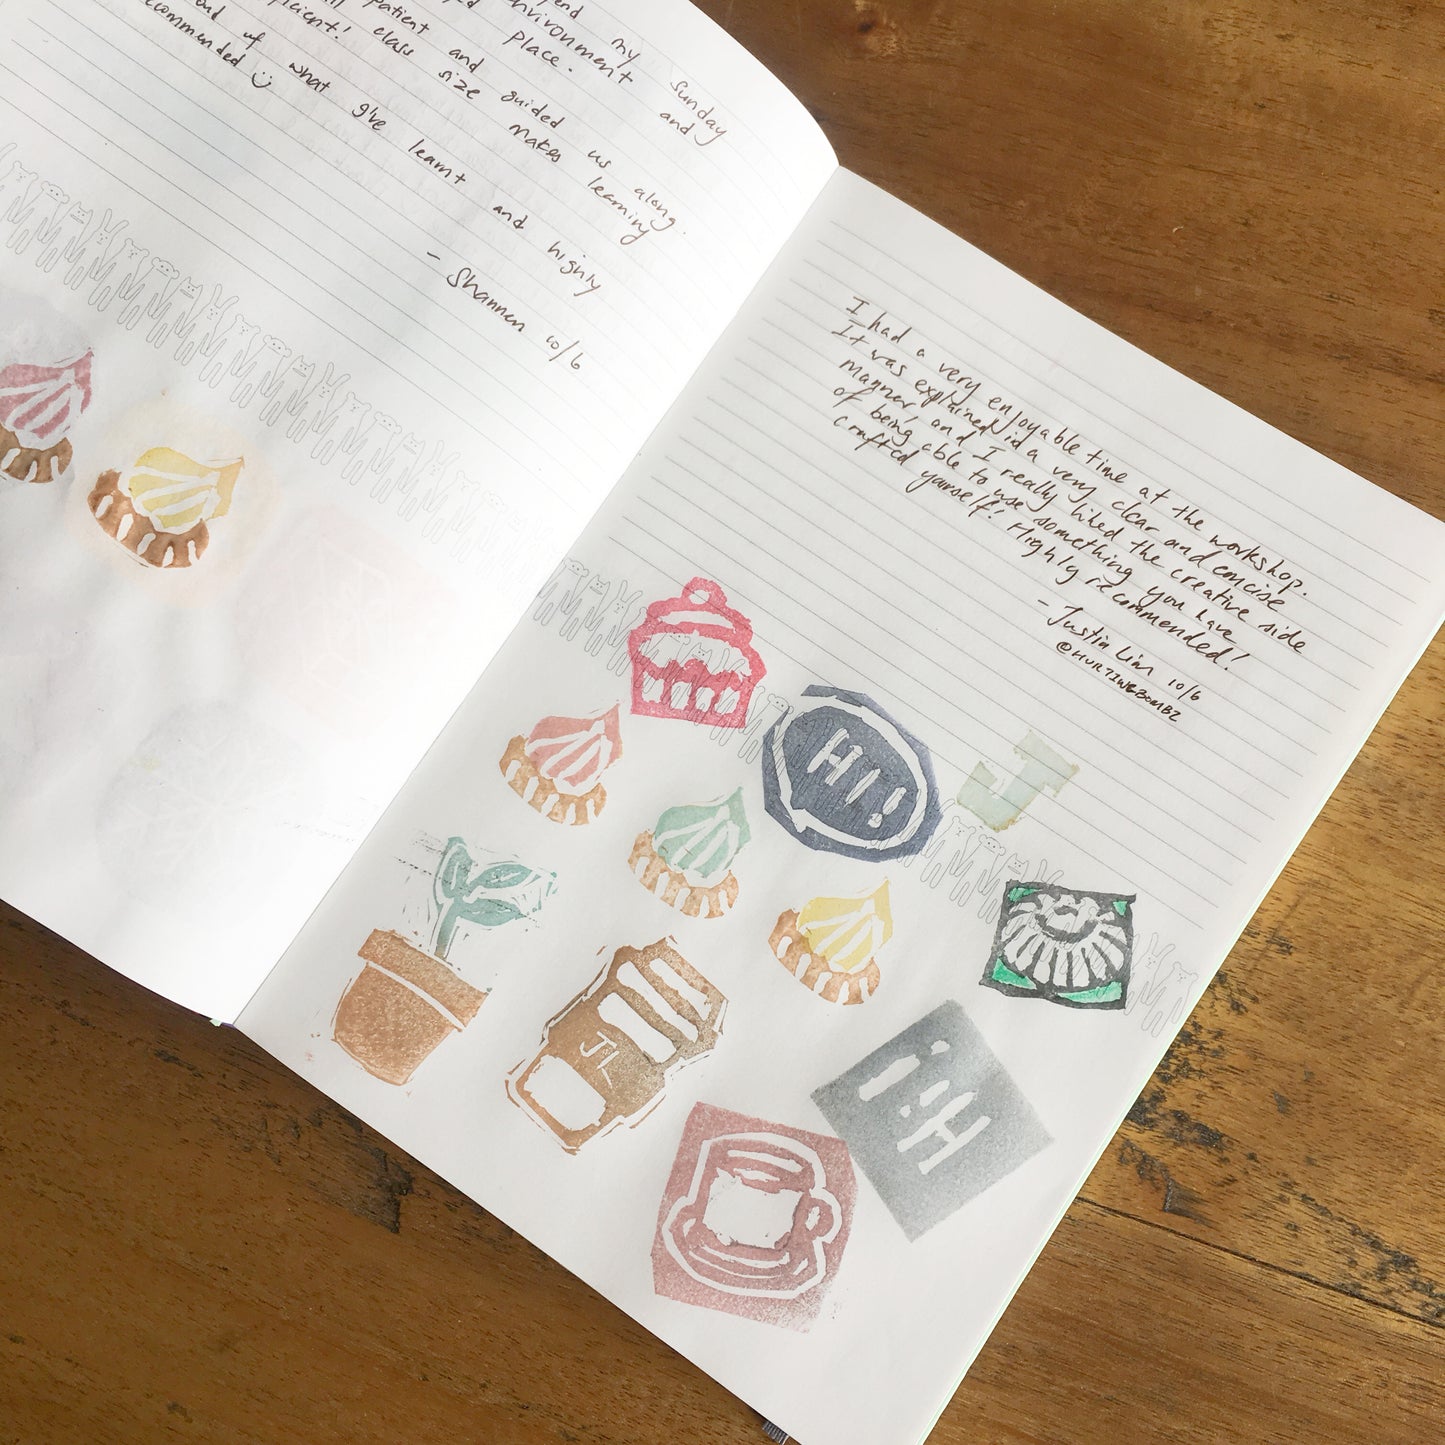 my Sunday
and
place.
patient and guided us along.
class size makes learning
of what learnt and highly
- Shannen 10/6
I had a very enjoyable time at the workshop.
It was explained in a very clear and concise
manner and I really liked the creative side
of being able to use something you have
crafted yourself! Highly recommended!
- Justin Lim 10/6
@HURTINGBOMBZ
HI!
J
JL
Hi!